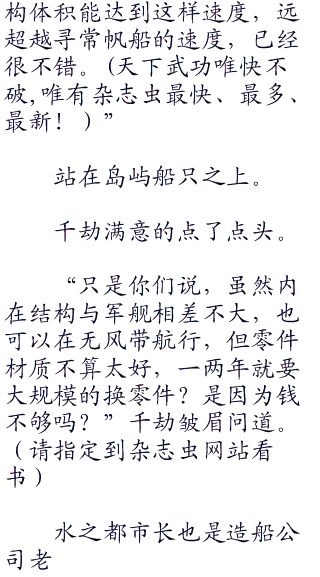 构体积能达到这样速度，远
超越寻常帆船的速度，已经
很不错。(天下武功唯快不
破,唯有杂志虫最快、最多、
最新！)”
站在岛屿船只之上。
千劫满意的点了点头。
“只是你们说，虽然内
在结构与军舰相差不大，也
可以在无风带航行，但零件
材质不算太好，一两年就要
大规模的换零件？是因为钱
不够吗？”千劫皱眉问道。
（请指定到杂志虫网站看
书）
水之都市长也是造船公
司老